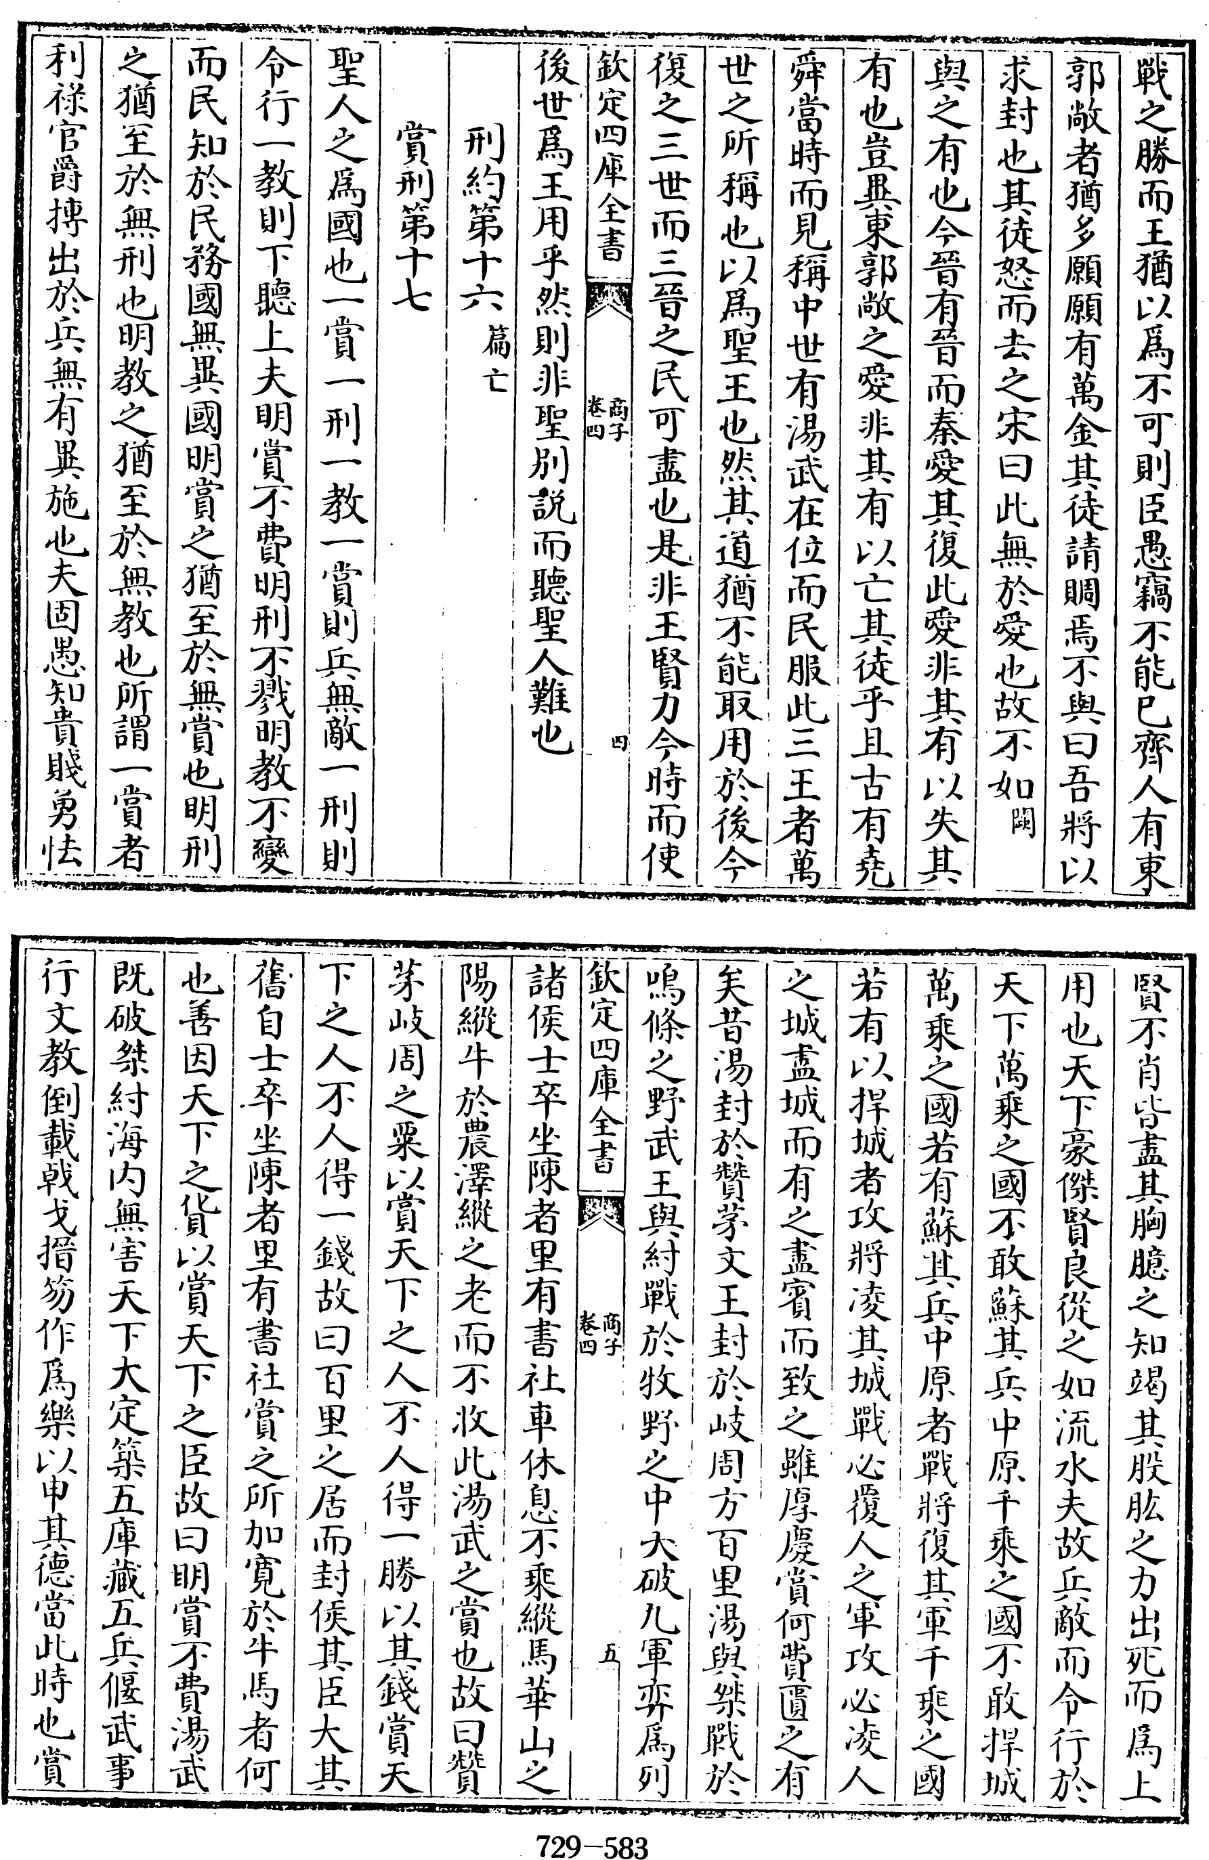 戰之勝而王猶以爲不可則臣愚竊不能已齊人有東
郭敞者猶多願願有萬金其徒請賙焉不與曰吾將以
求封也其徒怒而去之宋曰此無於愛也故不如闕
與之有也今晉有晉而秦愛其復此愛非其有以失其
有也豈異東郭敞之愛非其有以亡其徒乎且古有堯
舜當時而見稱中世有湯武在位而民服此三王者萬
世之所稱也以爲聖王也然其道猶不能取用於後今
復之三世而三晉之民可盡也是非王賢力今時而使
欽定四庫全書
商子
卷四
四
後世爲王用乎然則非聖別說而聽聖人難也
刑約第十六篇亡
賞刑第十七
聖人之爲國也一賞一刑一教一賞則兵無敵一刑則
令行一教則下聽上夫明賞不費明刑不戮明教不變
而民知於民務國無異國明賞之猶至於無賞也明刑
之猶至於無刑也明教之猶至於無教也所謂一賞者
利祿官爵摶出於兵無有異施也夫固愚知貴賤勇怯
賢不肖皆盡其胸臆之知竭其股肱之力出死而爲上
用也天下豪傑賢良從之如流水夫故兵敵而令行於
天下萬乘之國不敢蘇其兵中原千乘之國不敢捍城
萬乘之國若有蘇其兵中原者戰將復其軍千乘之國
若有以捍城者攻將凌其城戰必覆人之軍攻必凌人
之城盡城而有之盡賓而致之雖厚慶賞何費匱之有
矣昔湯封於贊茅文王封於岐周方百里湯與桀戰於
鳴條之野武王與紂戰於牧野之中大破九軍弈爲列
欽定四庫全書
商子
卷四
五
諸侯士卒坐陳者里有書社車休息不乘縱馬華山之
陽縱牛於農澤縱之老而不收此湯武之賞也故曰贊
茅岐周之粟以賞天下之人不人得一勝以其錢賞天
下之人不人得一錢故曰百里之居而封侯其臣大其
舊自士卒坐陳者里有書社賞之所加寬於牛馬者何
也善因天下之貨以賞天下之臣故曰明賞不費湯武
既破桀紂海內無害天下大定築五庫藏五兵偃武事
行文教倒載戟戈搢笏作爲樂以申其德當此時也賞
729-583